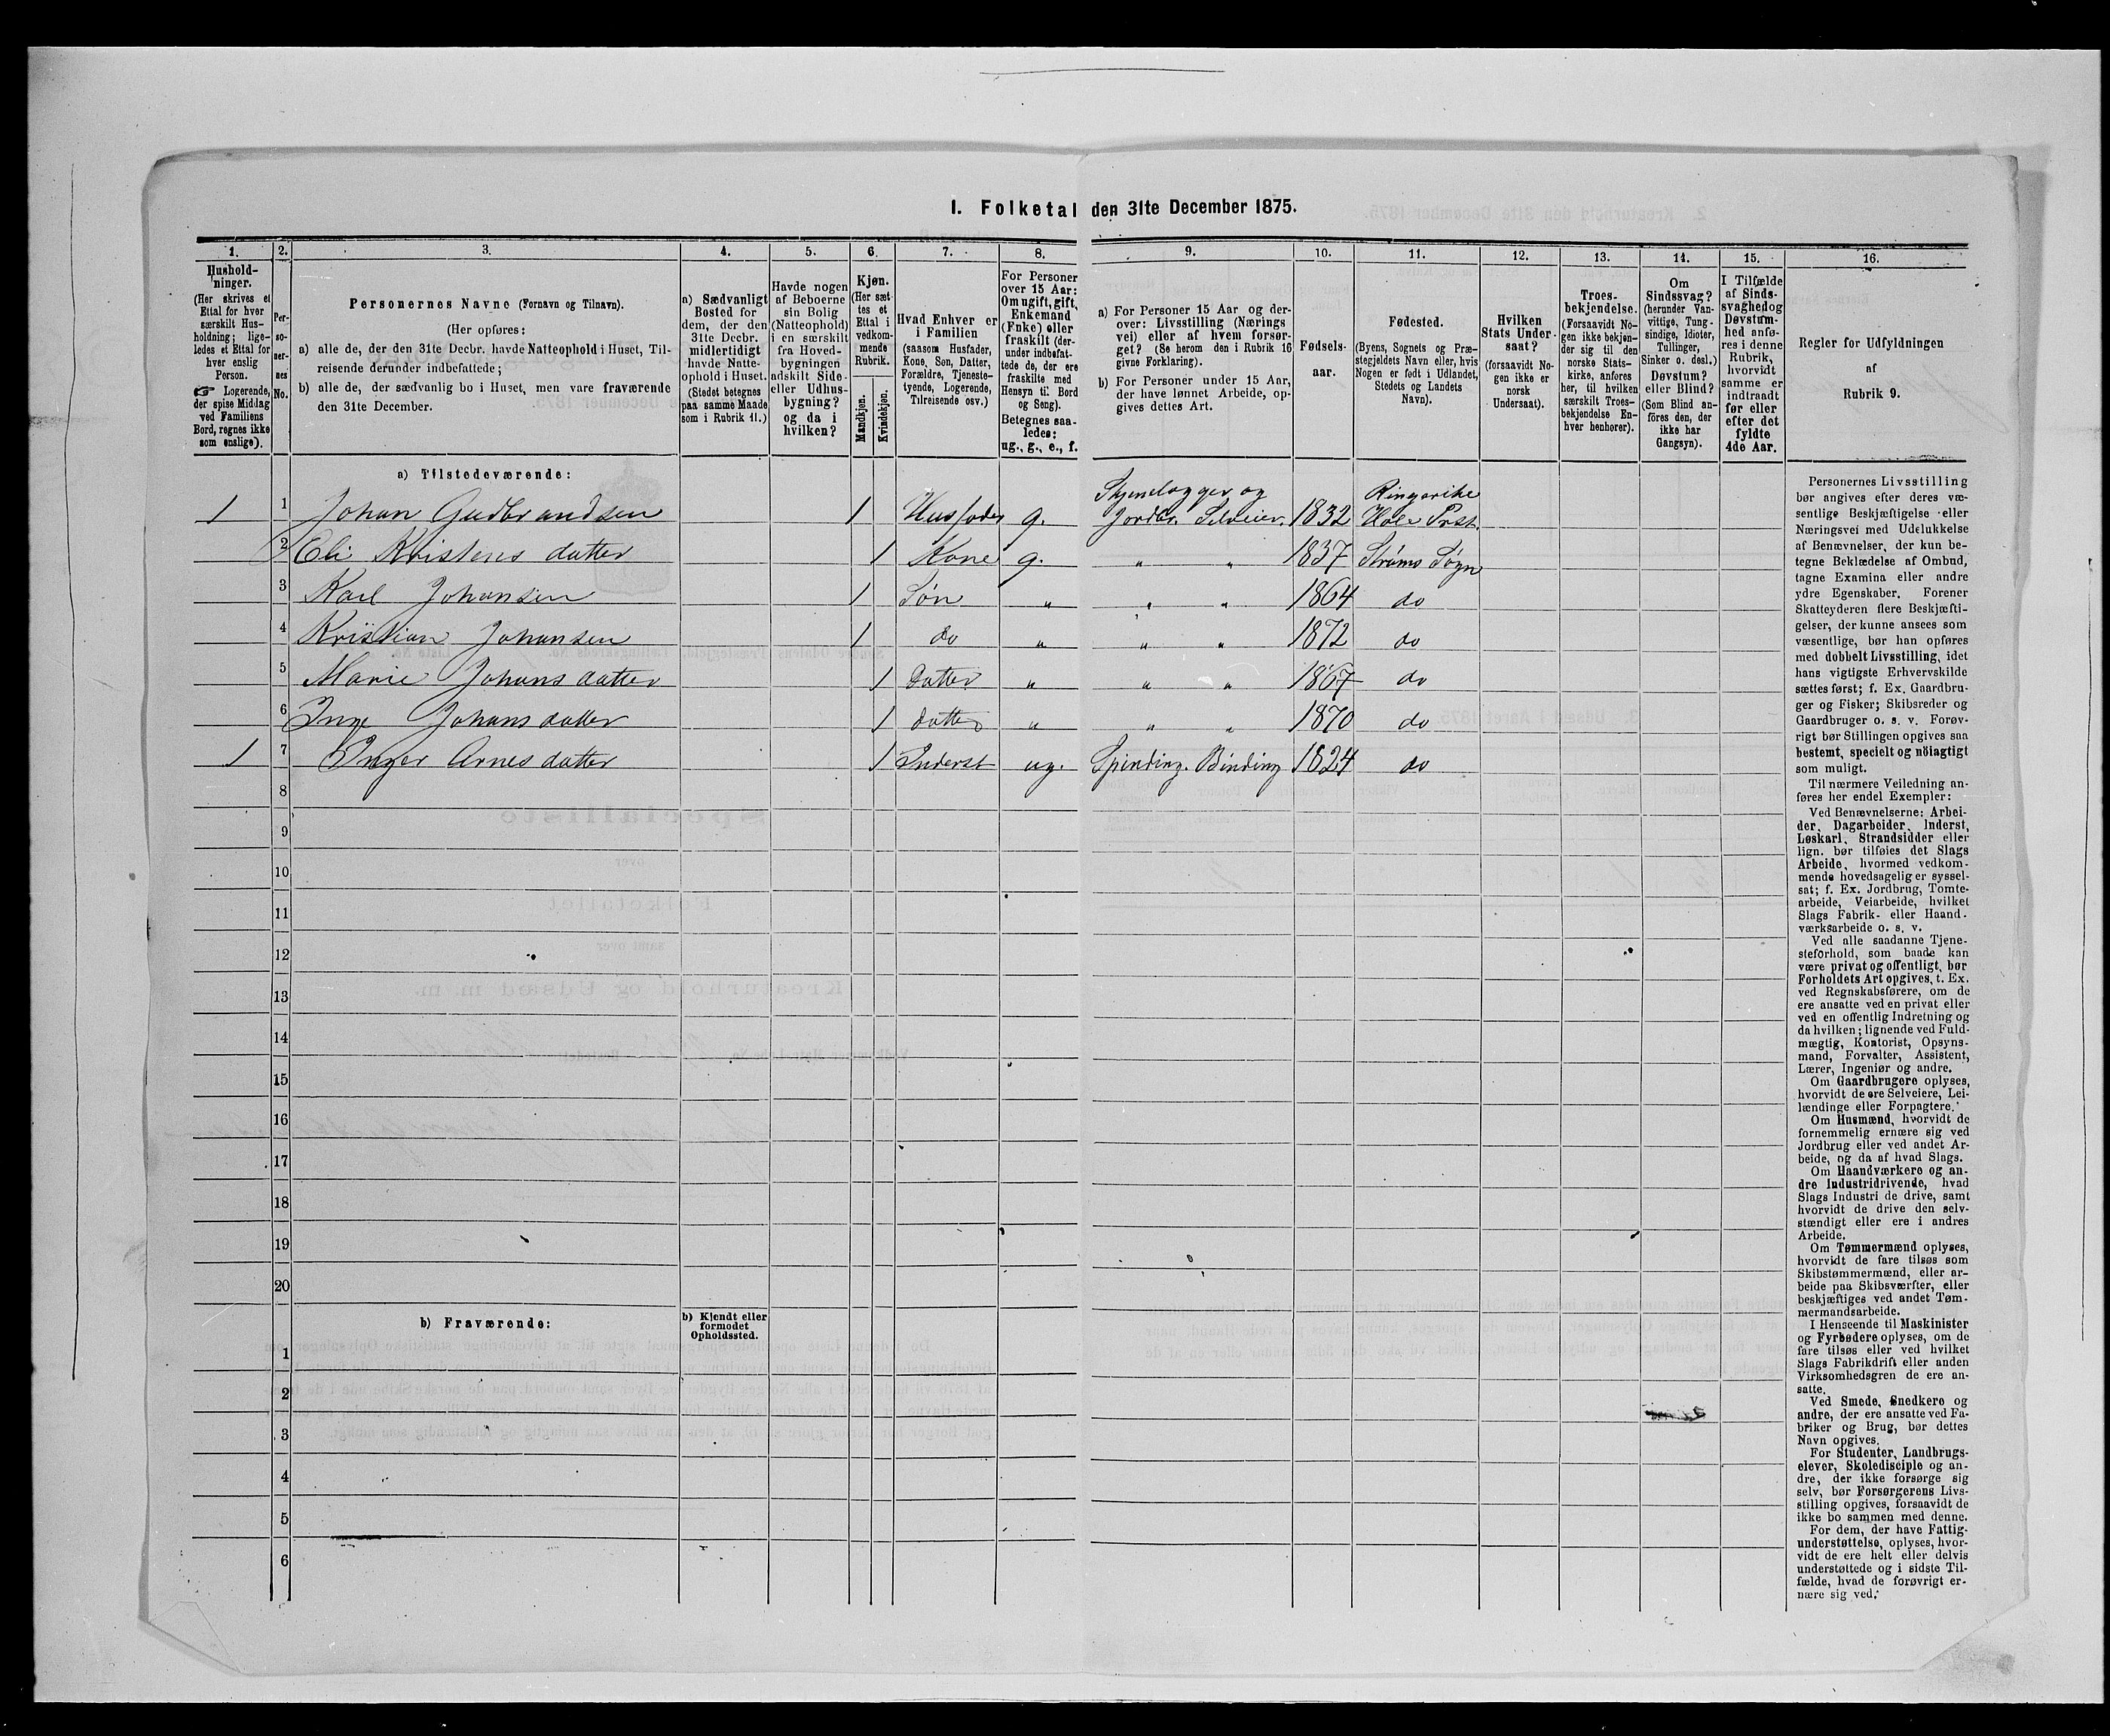 I. Folketal den 31te December 1875.
1.
Hushold-
ninger.
(Her skrives et
Ettal for hver
særskilt Hus-
holdning; lige-
ledes et Ettal for
hver enslig
Person.
☞ Logerende,
der spise Middag
ved Familiens
Bord, regnes ikke
som enslige).
2.
Per-
so-
ner-
nes
No.
3.
Personernes Navne (Fornavn og Tilnavn).
(Her opføres:
a) alle de, der den 31te Decbr. havde Natteophold i Huset, Til-
reisende derunder indbefattede;
b) alle de, der sædvanlig bo i Huset, men vare fraværende
den 31te December.
4.
a) Sædvanligt
Bosted for
dem, der den
31te Decbr.
midlertidigt
havde Natte-
ophold i Huset.
(Stedet betegnes
paa samme Maade
som i Rubrik 11.)
5.
Havde nogen
af Beboerne
sin Bolig
(Natteophold)
i en særskilt
fra Hoved-
bygningen
adskilt Side-
eller Udhus-
bygning?
og da i
hvilken?
6.
Kjøn.
(Her sæt-
tes et
Ettal i
vedkom-
mende
Rubrik.
Mandkjøn.
Kvindekjøn.
7.
Hvad Enhver er
i Familien
(saasom Husfader,
Kone, Søn, Datter,
Forældre, Tjeneste-
tyende, Logerende,
Tilreisende osv.)
8.
For Personer
over 15 Aar:
Om ugift, gift,
Enkemand
(Enke) eller
fraskilt (der-
under indbefat-
tede de, der ere
fraskilte med
Hensyn til Bord
og Seng).
Betegnes saa-
ledes:
ug., g., e., f.
9.
a) For Personer 15 Aar og der-
over: Livsstilling (Nærings
vei) eller af hvem forsør-
get? (Se herom den i Rubrik 16
givne Forklaring).
b) For Personer under 15 Aar,
der have lønnet Arbeide, op-
gives dettes Art.
10.
Fødsels-
aar.
11.
Fødested.
(Byens, Sognets og Præ-
stegjeldets Navn eller, hvis
Nogen er født i Udlandet,
Stedets og Landets
Navn).
12.
Hvilken
Stats Under-
saat?
(forsaavidt No-
gen ikke er
norsk
Undersaat).
13.
Troes-
bekjendelse.
(Forsaavidt No-
gen ikke bekjen-
der sig til den
norske Stats-
kirke, anføres
her, til hvilken
særskilt Troes-
bekjendelse En-
hver henhører).
14.
Om
Sindssvag?
(herunder Van-
vittige, Tung-
sindige, Idioter,
Tullinger,
Sinker o. desl.)
Døvstum?
eller Blind?
(Som Blind an-
føres den, der
ikke har
Gangsyn).
15.
I Tilfælde
af Sinds-
svaghed og
Døvstum-
hed anfø-
res i denne
Rubrik,
hvorvidt
samme er
indtraadt
før eller
efter det
fyldte
4de Aar.
16.
Regler for Udfyldningen
af
Rubrik 9.
a) Tilstedeværende:
1 1 Johan Gudbrandsen 1 Husfader g. Skjenelægger og Jordbr. Selveier 1832 Ringerike Hole Prst.
2 Oli Kristensdatter 1 Kone g. " " 1837 Strøms Sogn
3 Karl Johansen 1 Søn " " " 1864 do
4 Kristian Johansen 1 do " " " 1872 do
5 Marie Johansdatter 1 Datter " " " 1867 do
6 Inge Johansdatter 1 datter " " " 1870 do
1 7 Inger Arnesdatter 1 Inderst ug. Spinding. Binding 1824 do
8
9
10
11
12
13
14
15
16
17
18
19
20
b) Fraværende:
b) Kjendt eller
formodet
Opholdssted.
1
2
3
4
5
6
Personernes Livsstilling
bør angives efter deres væ-
sentlige Beskjæftigelse eller
Næringsvei med Udelukkelse
af Benævnelser, der kun be-
tegne Beklædelse af Ombud,
tagne Examina eller andre
ydre Egenskaber. Forener
Skatteyderen flere Beskjæfti-
gelser, der kunne ansees som
væsentlige, bør han opføres
med dobbelt Livsstilling, idet
hans vigtigste Erhvervskilde
sættes først; f. Ex. Gaardbru-
ger og Fisker; Skibsreder og
Gaardbruger o. s. v. Forøv-
rigt bør Stillingen opgives saa
bestemt, specielt og nöiagtigt
som muligt.
Til nærmere Veiledning an-
føres her endel Exempler:
Ved Benævnelserne: Arbei-
der, Dagarbeider, Inderst,
Løskarl, Strandsidder eller
lign. bør tilføies det Slags
Arbeide, hvormed vedkom-
mende hovedsagelig er syssel-
sat; f. Ex. Jordbrug, Tomte-
arbeide, Veiarbeide, hvilket
Slags Fabrik- eller Haand-
værksarbeide o. s. v.
Ved alle saadanne Tjene-
steforhold, som baade kan
være privat og offentligt, bør
Forholdets Art opgives, t. Ex.
ved Regnskabsførere, om de
ere ansatte ved en privat eller
ved en offentlig Indretning og
da hvilken; lignende ved Fuld-
mægtig, Kontorist, Opsyns-
mand, Forvalter, Assistent,
Lærer, Ingeniør og andre.
Om Gaardbrugere oplyses,
hvorvidt de ere Selveiere, Lei-
lændinge eller Forpagtere.
Om Husmænd, hvorvidt de
fornemmelig ernære sig ved
Jordbrug eller ved andet Ar-
beide, og da af hvad Slags.
Om Haandværkere og an-
dre Industridrivende, hvad
Slags Industri de drive, samt
hvorvidt de drive den selv-
stændigt eller ere i andres
Arbeide.
Om Tømmermænd oplyses,
hvorvidt de fare tilsøs som
Skibstømmermænd, eller ar-
beide paa Skibsværfter, eller
beskjæftiges ved andet Tøm-
mermandsarbeide.
I Henseende til Maskinister
og Fyrbødere oplyses, om de
fare tilsøs eller ved hvilket
Slags Fabrikdrift eller anden
Virksomhedsgren de ere an-
satte.
Ved Smede, Snedkere og
andre, der ere ansatte ved Fa-
briker og Brug, bør dettes
Navn opgives.
For Studenter, Landbrugs-
elever, Skoledisciple og an-
dre, der ikke forsørge sig
selv, bør Forsørgerens Livs-
stilling opgives, forsaavidt de
ikke bo sammen med denne.
For dem, der have Fattig-
understøttelse, oplyses, hvor-
vidt de ere helt eller delvis
understøttede og i sidste Til-
fælde, hvad de forøvrigt er-
nære sig ved.